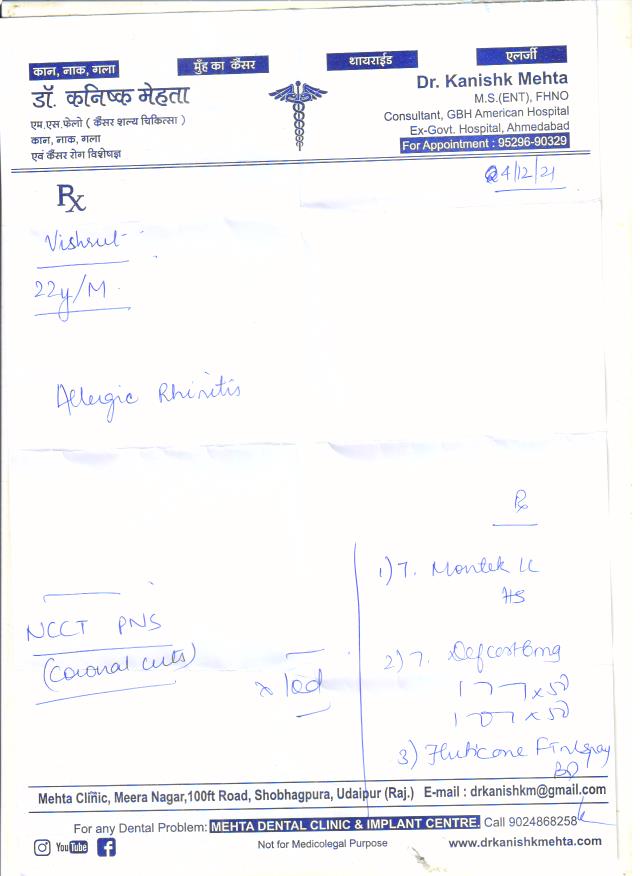 कान, नाक, गला
मुँह का कैंसर
थायराईड
एलर्जी
डॉ. कनिष्क मेहता
एम.एस.फेलो ( कैंसर शल्य चिकित्सा )
कान, नाक, गला
एवं कैंसर रोग विशेषज्ञ
Dr. Kanishk Mehta
M.S.(ENT), FHNO
Consultant, GBH American Hospital
Ex-Govt. Hospital, Ahmedabad
For Appointment : 95296-90329
24/12/21
Rx
Vishrut
22y/M
Allergic Rhinitis
NCCT PNS
(coronal cuts)
x 10d
Rx
1) T. Montek LC
HS
2) T. Defcort 6mg
x 5d
x 5d
3) Fluticone FT N Spray
BD
Mehta Clinic, Meera Nagar,100ft Road, Shobhagpura, Udaipur (Raj.) E-mail : drkanishkm@gmail.com
For any Dental Problem: MEHTA DENTAL CLINIC & IMPLANT CENTRE. Call 9024868258
YouTube
Not for Medicolegal Purpose
www.drkanishkmehta.com